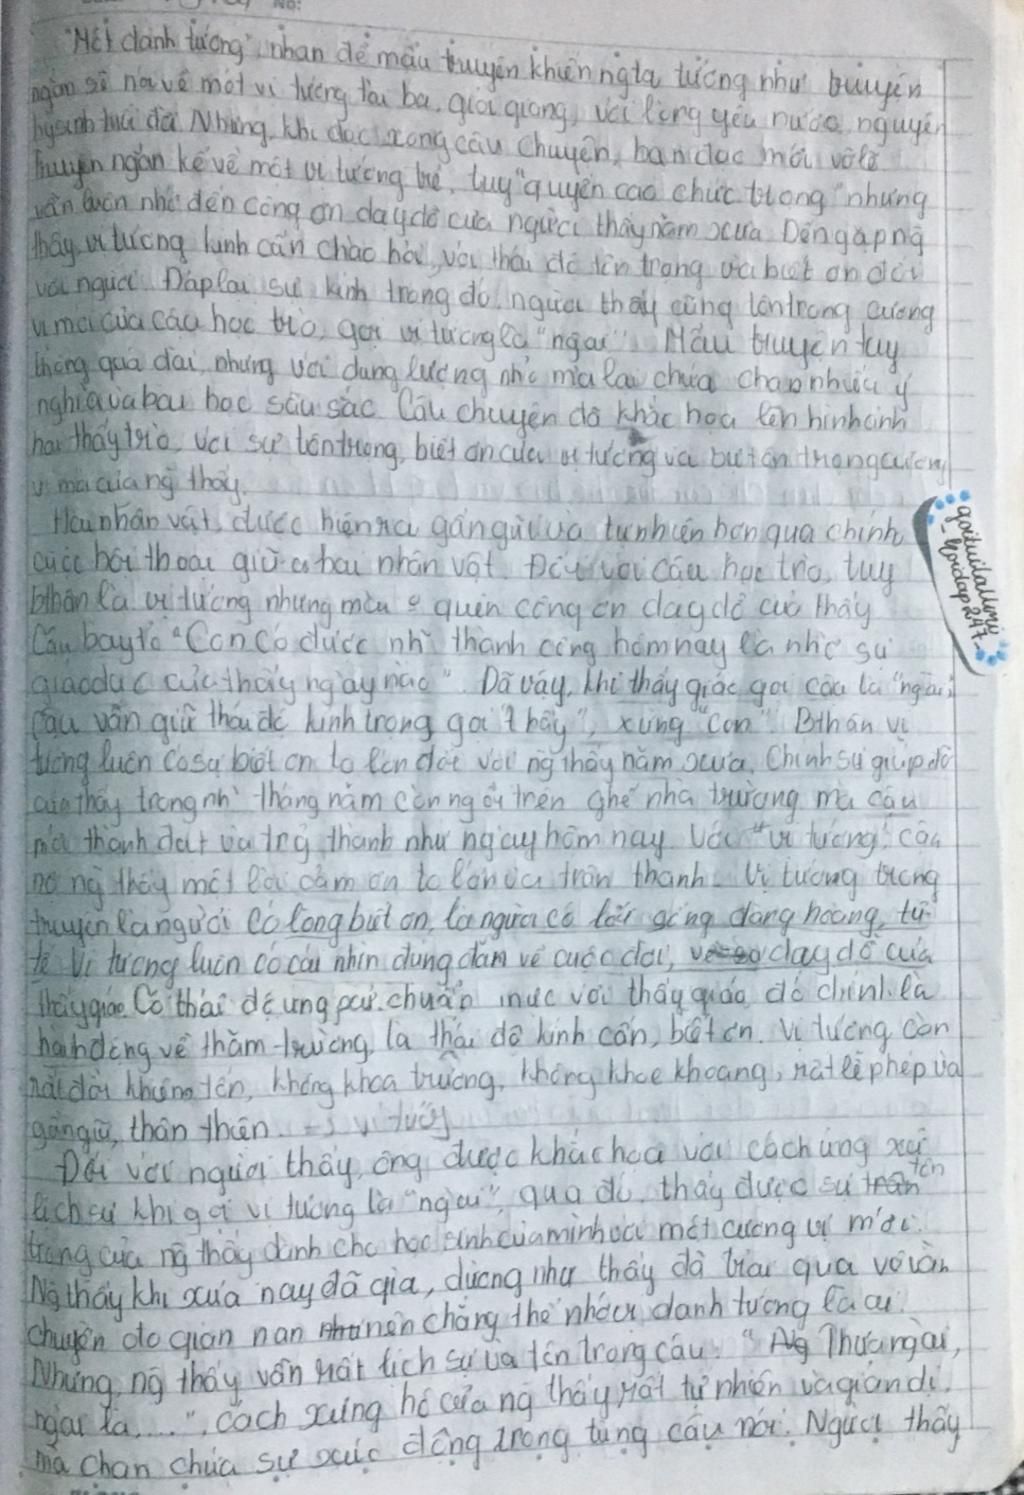 No:
"Một danh tướng", nhan đề mẩu truyện khiến ngta tưởng như truyện
ngắn sẽ nói về một vị tướng tài ba, giỏi giang, với lòng yêu nước, nguyện
hy sinh tuổi đời. Nhưng, khi đọc xong câu chuyện, bạn đọc mới vỡ lẽ
truyện ngắn kể về một vị tướng trẻ, tuy "quyền cao chức trọng" nhưng
vẫn luôn nhớ đến công ơn dạy dỗ của người thầy năm xưa. Đến gặp ng
thầy, vị tướng kính cẩn chào hỏi, với thái độ tôn trọng và biết ơn đối
với người. Đáp lại sự kính trọng đó, người thầy cũng tôn trọng cương
vị mới của cậu học trò, gọi vị tướng là "ngài". Mẩu truyện tuy
không quá dài, nhưng với dung lượng nhỏ mà lại chứa chan nhiều ý
nghĩa và bài học sâu sắc. Câu chuyện đã khắc họa lên hình ảnh
hai thầy trò, với sự tôn trọng, biết ơn của vị tướng và trong cương
vị mới của ng thầy.
Hai nhân vật được hiện ra gần gũi và tự nhiên hơn qua chính
cuộc hội thoại giữa hai nhân vật. Đối với cậu học trò, tuy
bthân là vị tướng nhưng quên công ơn dạy dỗ của thầy
Cậu bày tỏ "Con có được nh~ thành công hôm nay là nhờ sự
giáo dục của thầy ngày nào". Dã vậy, khi thầy giáo gọi cậu là "ngài",
cậu vẫn giữ thái độ kính trọng gọi "thầy", xưng "con". Bthân vị
tướng luôn có sự biết ơn to lớn đối với ng thầy năm xưa. Chính sự giúp đỡ
của thầy trong nh~ tháng năm còn ngồi trên ghế nhà trường mà cậu
mới thành đạt và trở thành như ngày hôm nay. Với "vị tướng", cậu
nợ ng thầy một lời cảm ơn to lớn và trân thành. Vị tướng trong
truyện là người có lòng biết ơn, là người có lối sống đàng hoàng, tử
tế. Vị tướng luôn có cái nhìn đúng đắn về cuộc đời, dạy dỗ của
thầy giáo. Có thái độ ứng xử chuẩn mực với thầy giáo, đó chính là
hành động về thăm trường, là thái độ kính cẩn, biết ơn. Vị tướng còn
rất đỗi khiêm tốn, không khoa trương, không khoe khoang, rất lễ phép và
gần gũi, thân thiện.
Đối với người thầy, ông được khắc họa với cách ứng xử
lịch sự khi gọi vị tướng là "ngài", qua đó, thấy được sự tôn
trọng của ng thầy dành cho học sinh của mình với một cương vị mới.
Ng thầy khi xưa nay đã già, dường như thầy đã trải qua vô vàn
chuyện đời gian nan nên chẳng thể nhớ vị danh tướng là ai.
Nhưng, ng thầy vẫn rất lịch sự và tôn trọng câu: "Thưa ngài,
ngài là....", cách xưng hô của ng thầy rất tự nhiên và giản dị,
mà chan chứa sự xúc động trong từng câu nói. Người thầy
goituilallimi
- hoidap247 -